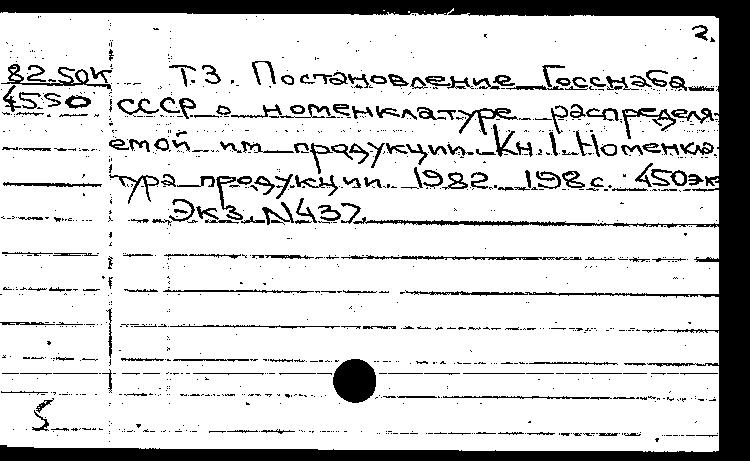 2.
82.50К Т.3. Постановление Госснаба
4550 СССР о номенклатуре распределя-
емой пт продукции. Кн.1. Номенкла-
тура продукции. 1982. 198с. 450эк
Экз. N437.
5